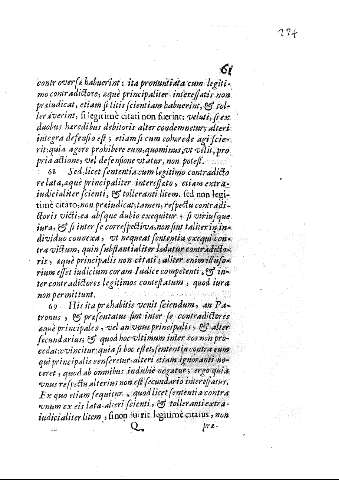 224
61
controversæ habuerint: ita pronuntiata cum legiti-
mo contradictore, aquè principaliter interessatis non
præiudicat, etiam si litis scientiam habuerint, & tol-
leraverint, si legitimè citati non fuerint: veluti, si ex
duobus hæredibus debitoris alter condemnetur; alteri
integra defensio est; etiam si cum cohærede agi scie-
rit: quia agere prohibere eum, quominus, ut velit, pro
pria actione, vel defensione utatur, non potest.
68 Sed, licet sententia cum legitimo contradicto
re lata, aquè principaliter interessato, etiam extra-
iudicialiter scienti, & tolleranti litem. sed non legi-
timè citato, non præiudicat; tamen, respectu contradi-
ctoris victi, ea absque dubio exequitur, si utriusque
iura, & si inter se correspectiva, non sunt taliter in in-
dividuo conexa, ut nequeat sententia exequi con-
tra victum, quin substantialiter ladatur contradicto-
ris, aquè principalis non citati; aliter enim illuso-
rium esset iudicium coram Iudice competenti, & in-
ter contradictores legitimos contestatum, quod iura
non permittunt.
69 His ita præhabitis venit sciendum, an Pa-
tronus, & præsentatus sint inter se contradictores
aquè principales, vel an unus principalis, & alter
secundarius; & quod hoc ultimum inter eos non pro-
cedat: vincitur: quia si hoc esset, sententia contra eum
qui principalis censeretur, alteri etiam ignoranti no-
ceret, quod ab omnibus indubiè negatur; ergo quia
unus respectu alterius non est secundario interessatus.
Ex quo etiam sequitur, quod licet sententia contra
unum ex eis lata, alteri scienti, & tolleranti extra-
iudicialiter litem, si non fuerit legitimè citatus, non
Q præ-